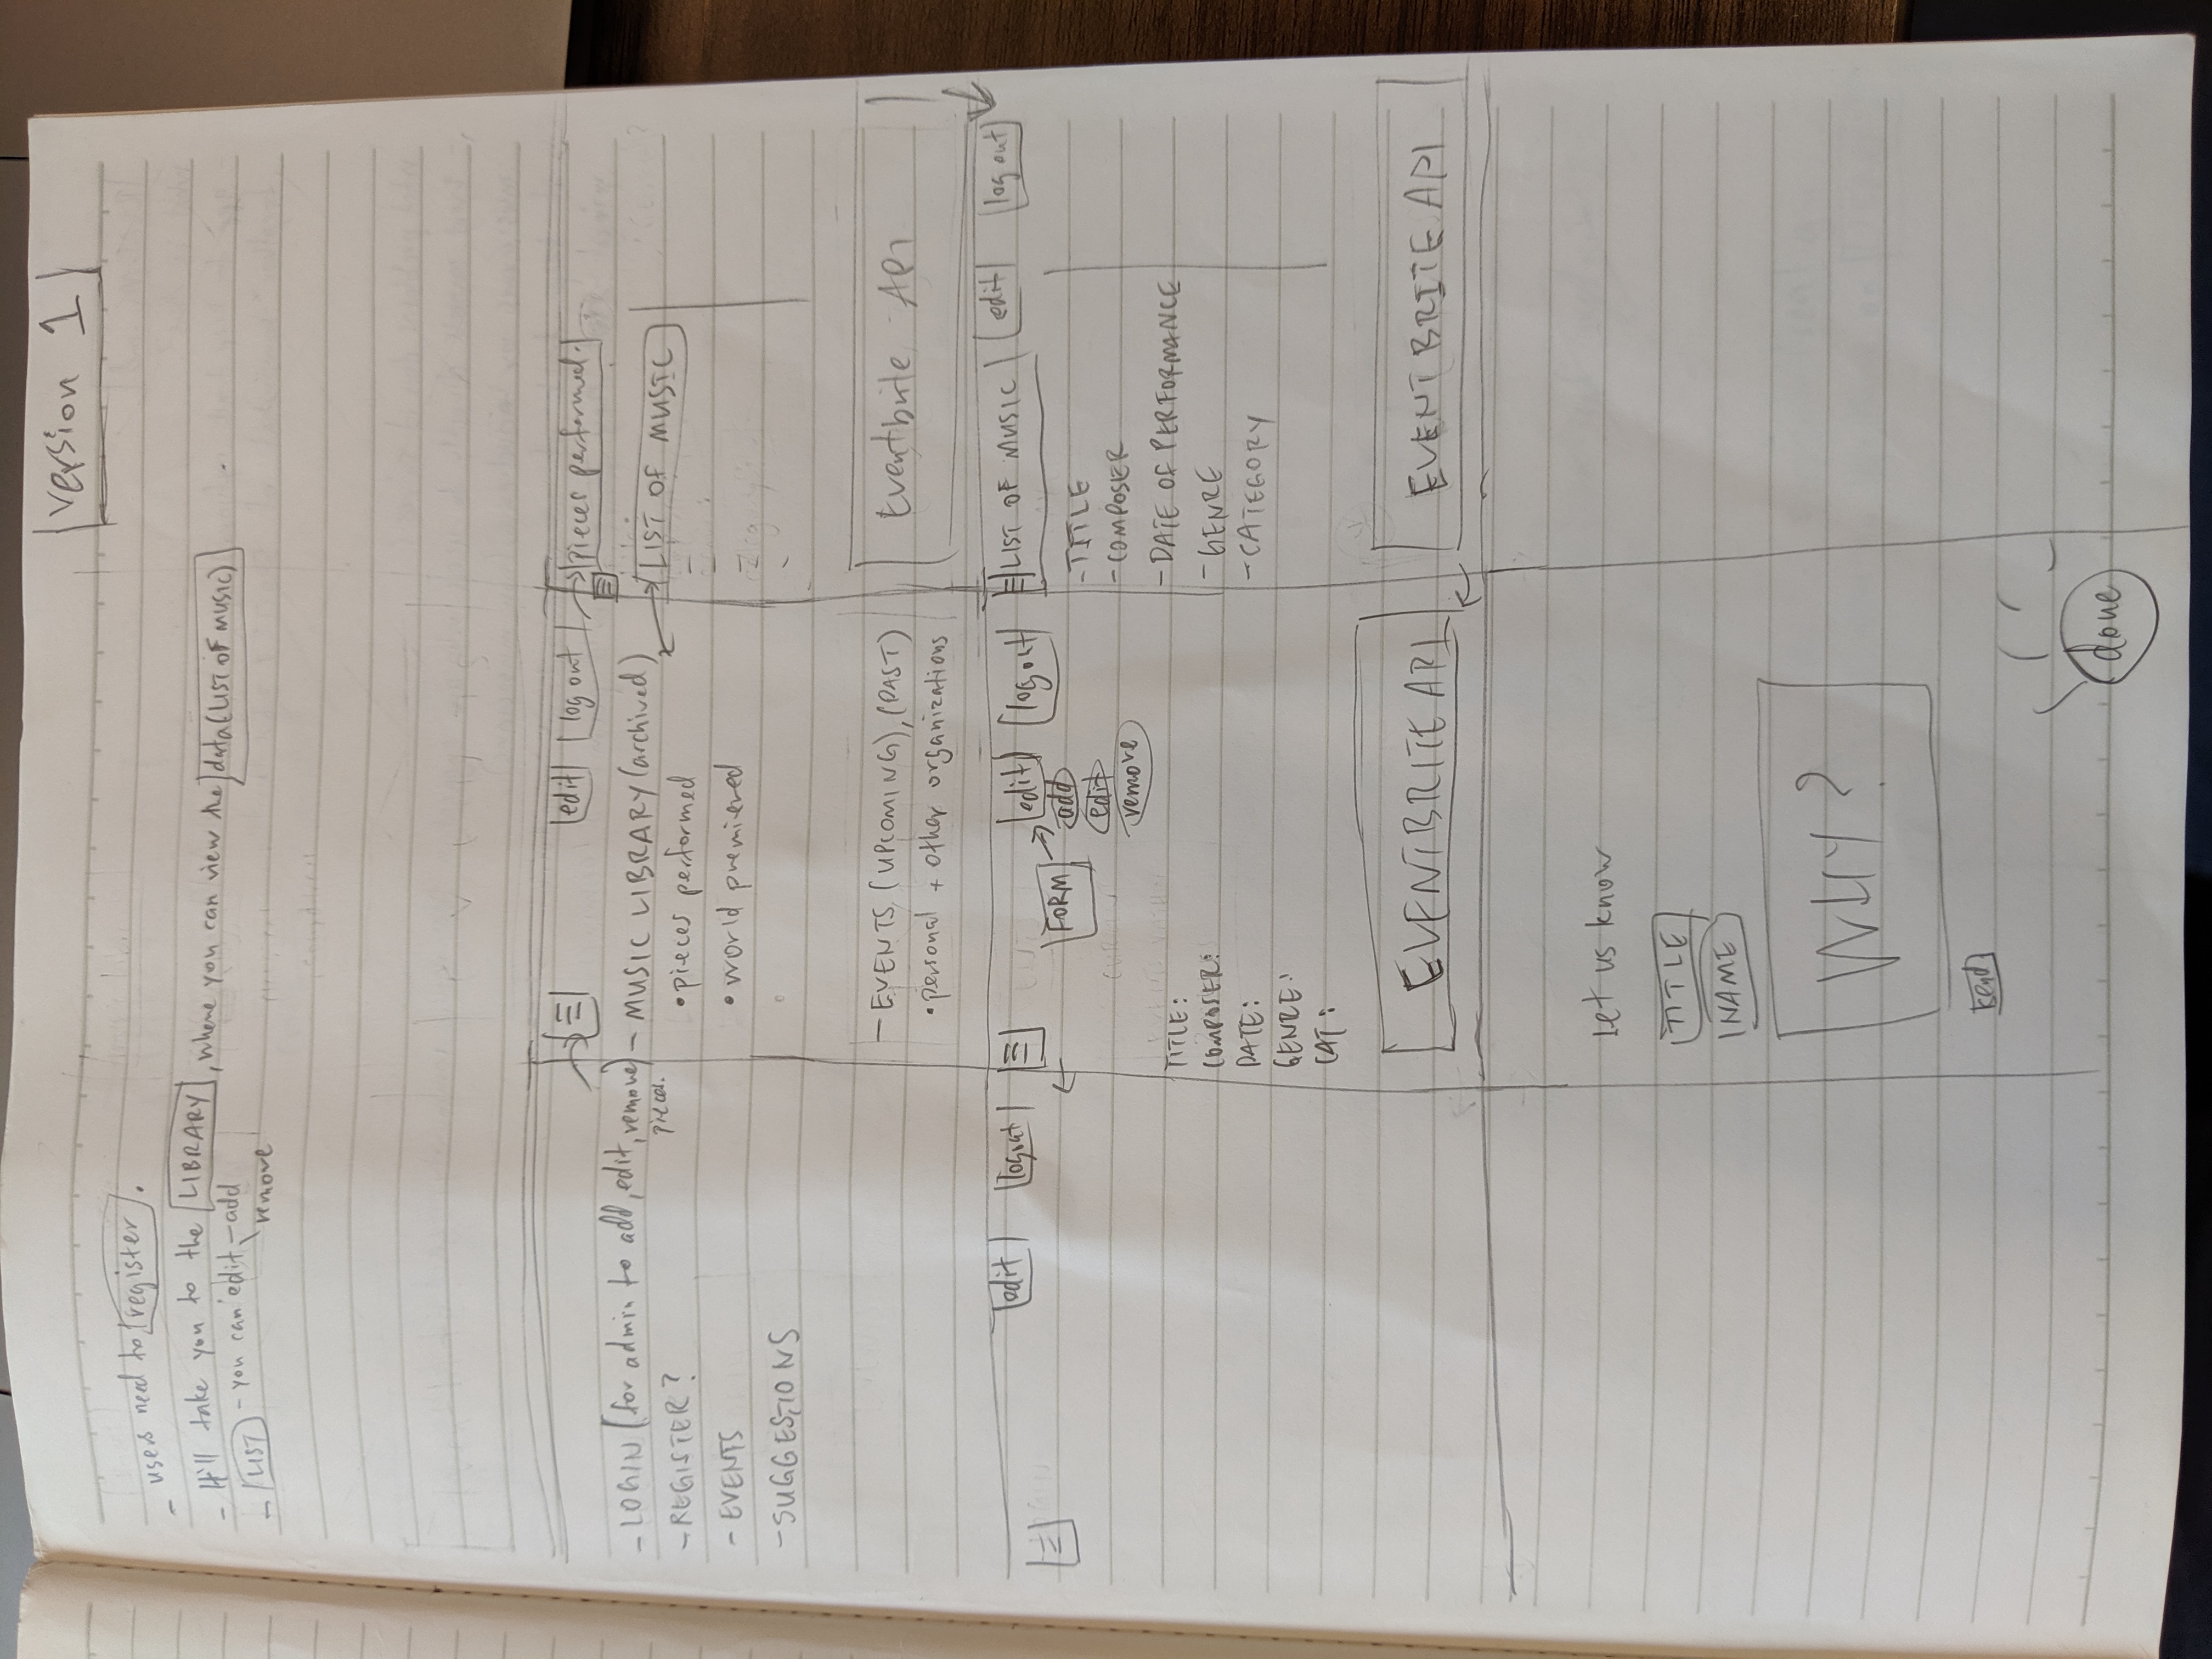 version 1
- users need to register.
- It'll take you to the LIBRARY, where you can view the data (LIST OF MUSIC)
- LIST - you can edit - add
remove
- LOGIN (for admin to add, edit, remove)
pieces.
- REGISTER?
- EVENTS
- SUGGESTIONS
edit log out
- MUSIC LIBRARY (archived)
• pieces performed
• world premiered
- EVENTS (UPCOMING), (PAST)
• personal + other organizations
pieces performed
LIST OF MUSIC
Eventbrite API
edit logout
FORM edit log out
add
edit
remove
TITLE:
COMPOSER:
DATE:
GENRE:
CAT:
EVENTBRITE API
LIST OF MUSIC edit log out
- TITLE
- COMPOSER
- DATE OF PERFORMANCE
- GENRE
- CATEGORY
EVENTBRITE API
Let us know
TITLE
NAME
WHY?
send
done